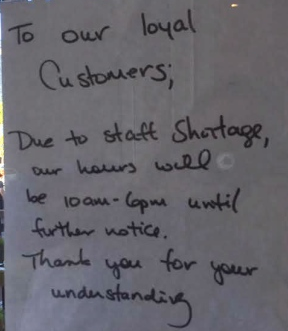 To our loyal
Customers;
Due to staff Shortage,
our hours will
be 10am-6pm until
further notice.
Thank you for your
understanding